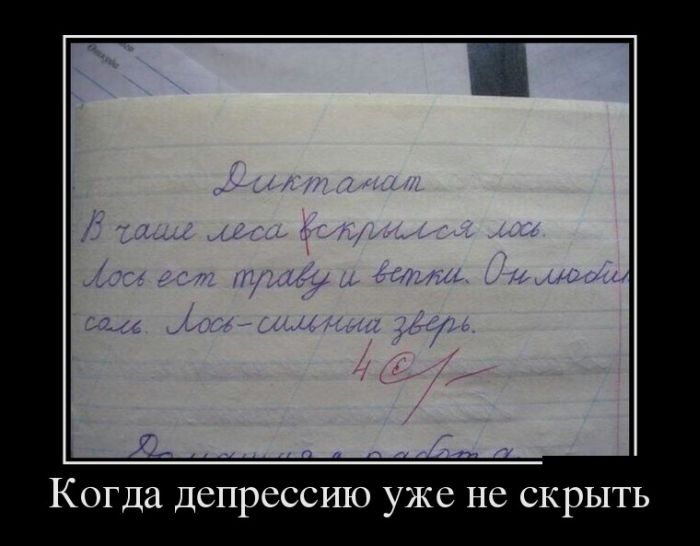 Диктанат
В чаше леса вскрылся лось.
Лось ест траву и ветки. Он любит
соль. Лось-сильныи зверь.
4
Когда депрессию уже не скрыть